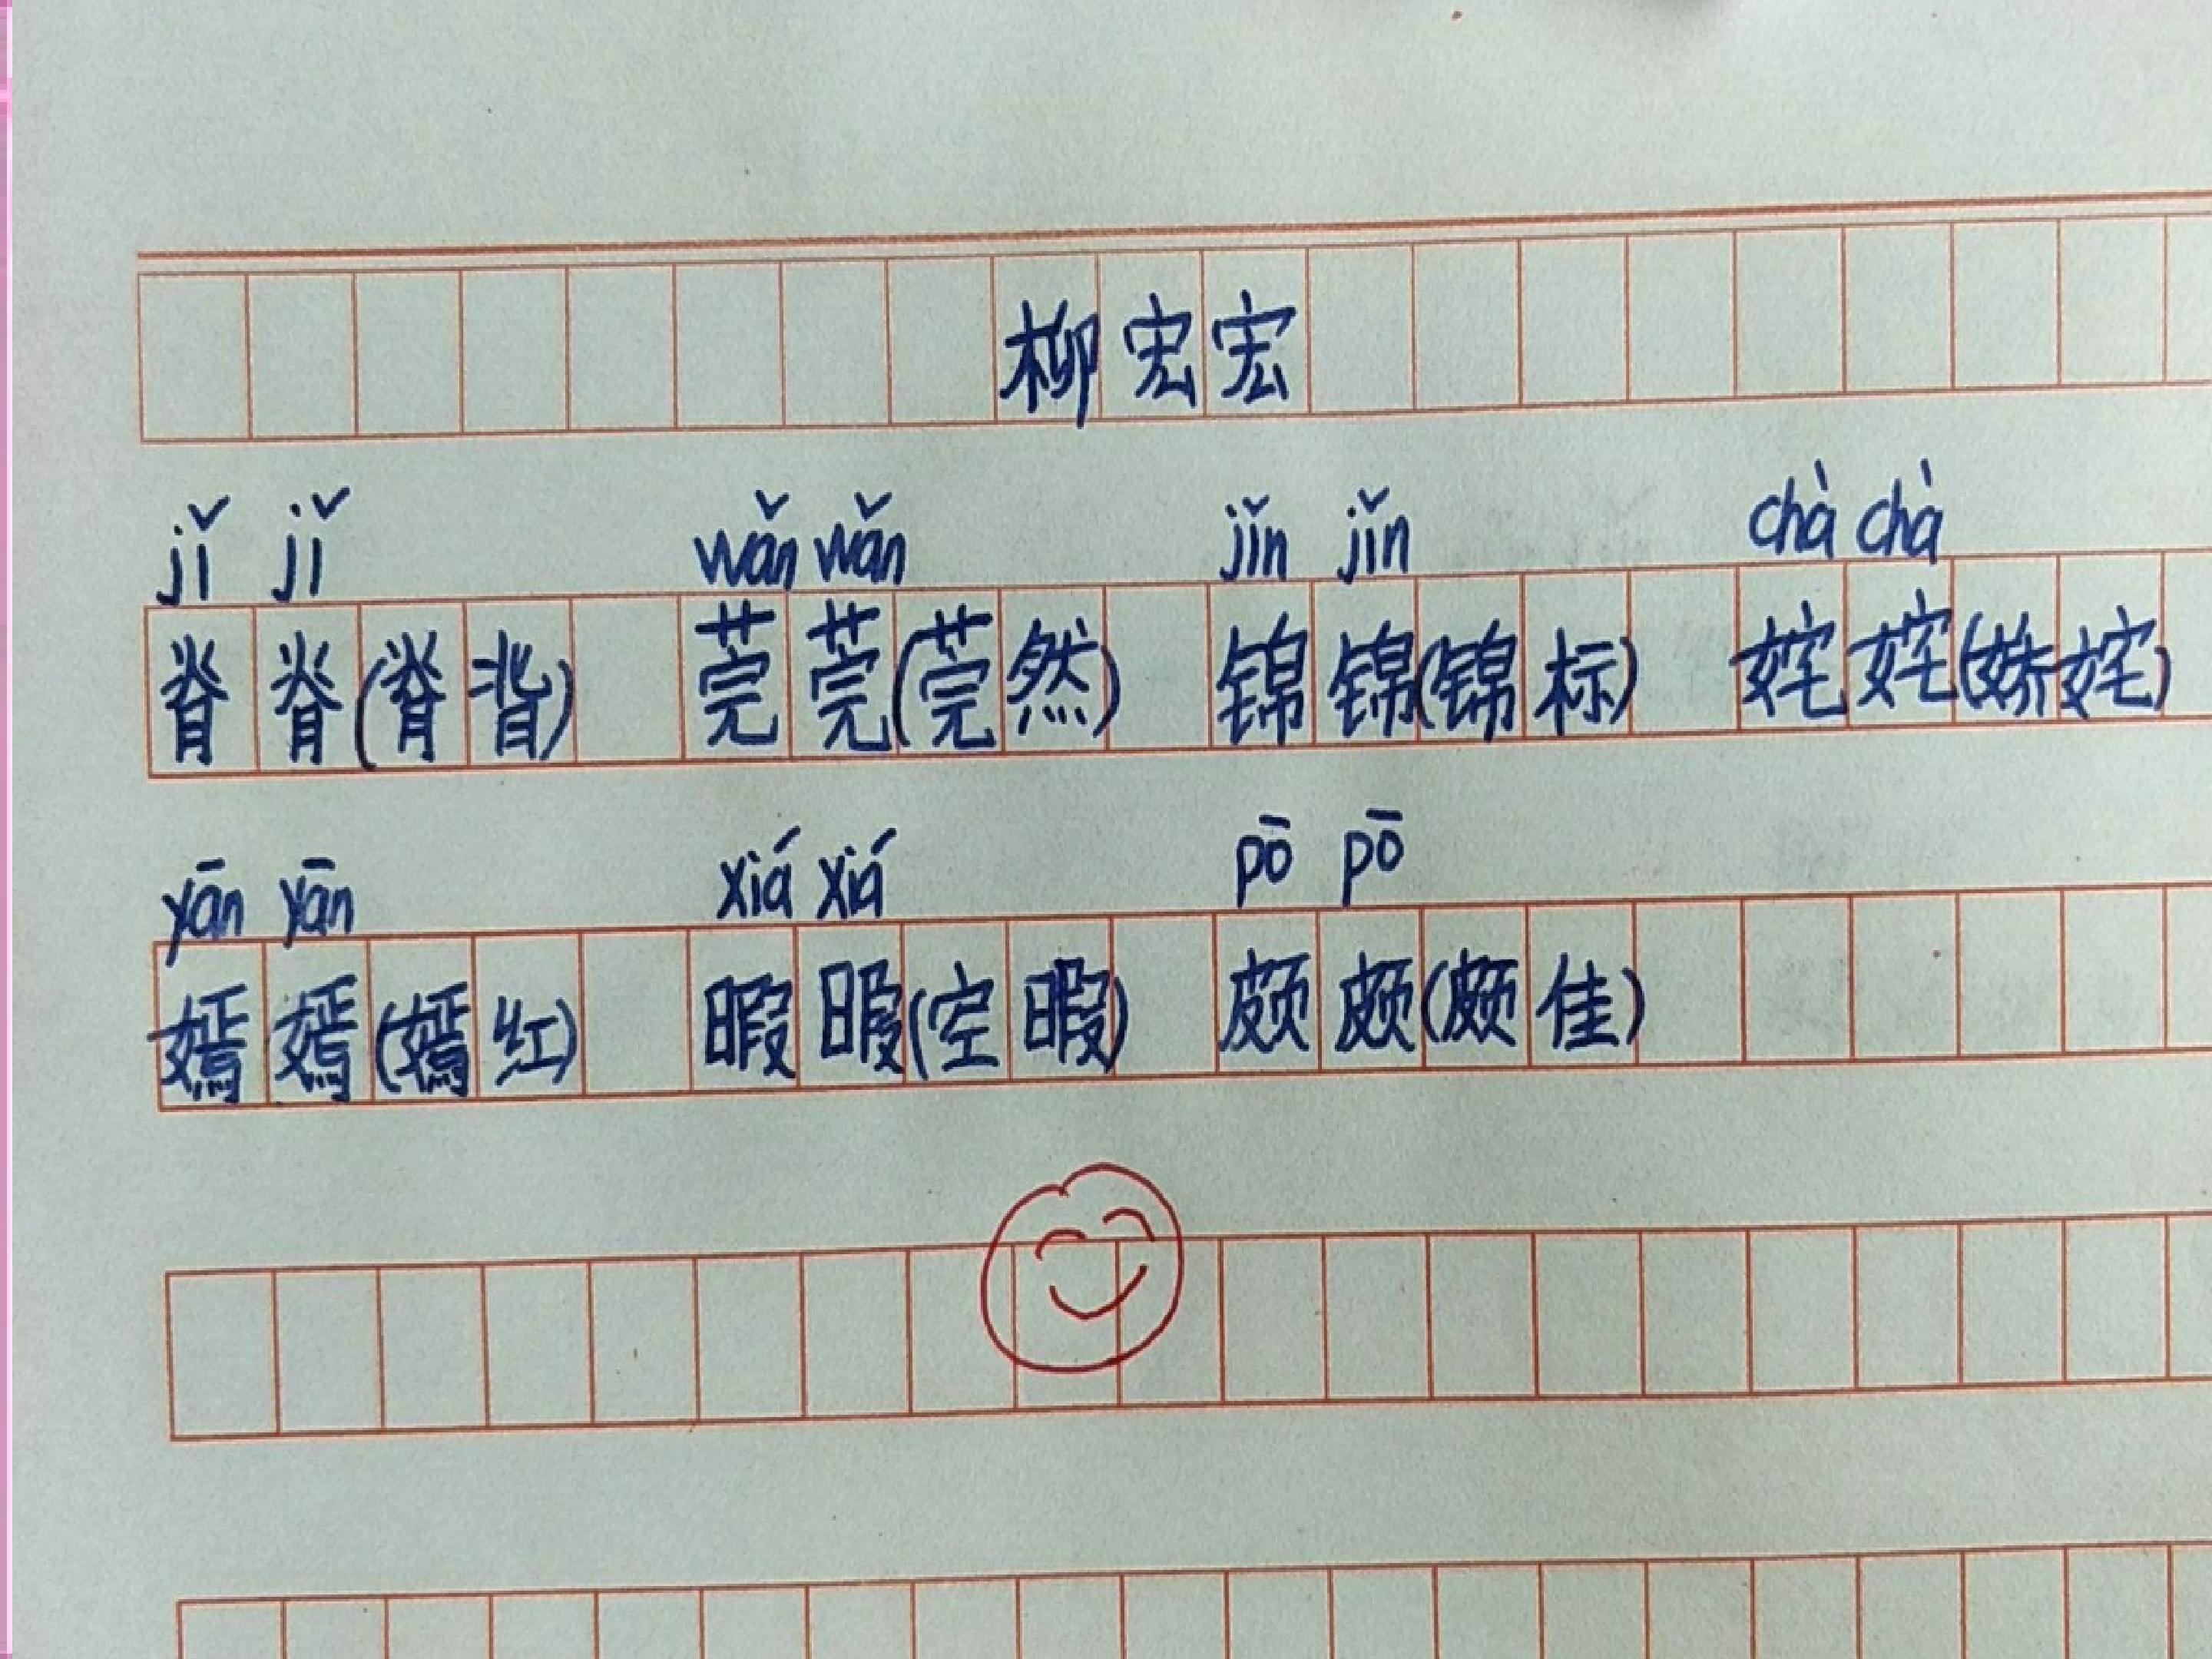 柳宏宏
jǐ jǐ wǎn wǎn jǐn jǐn chà chà
脊脊(脊背) 莞莞(莞然) 锦锦(锦标) 姹姹(娇姹)
yān yān xiá xiá pō pō
嫣嫣(嫣红) 暇暇(空暇) 颇颇(颇佳)